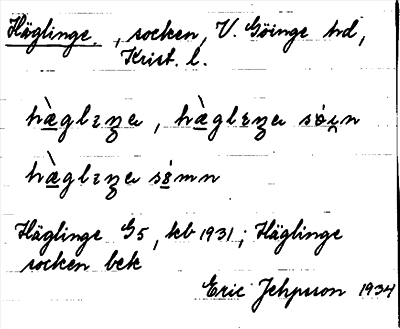 Häglinge, socken, V. Göinge hrd,
Krist. l.
hà̱glɪŋa, hà̱glɪŋa só̱ɪn
hà̱glɪŋa sé̱mn
Häglinge G5, kb 1931; Häglinge
socken bek
Eric Jehpsson 1934